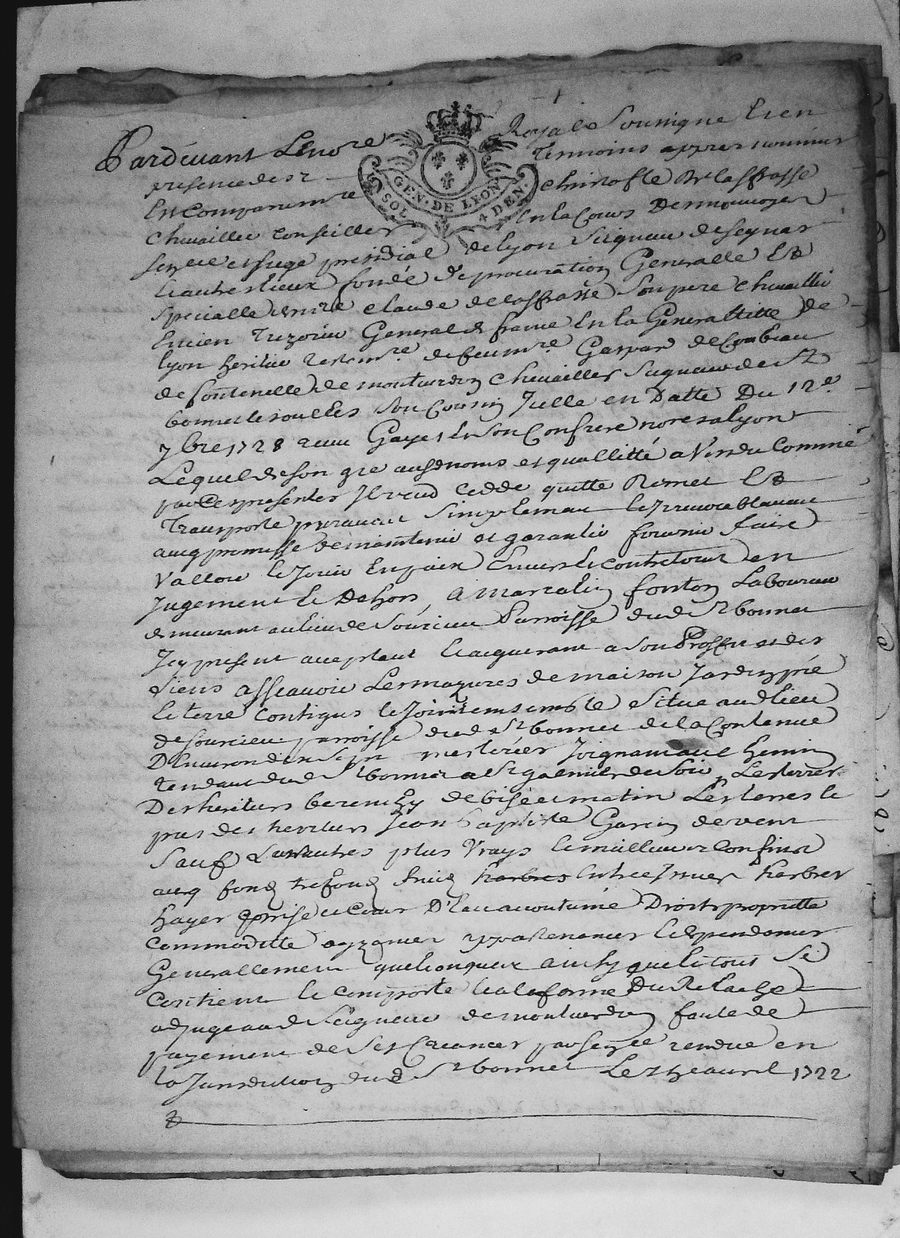 Pardevant Lenore Royal Sousigne Et en
presence des temoins appres nommés
Est Comparu mre christofle De la frasse
chevaillier Conseiller En la Cour Des monnoyes
senee et siege presidial de lyon seigneur de seynar
& autres lieux fondé de procuration Generalle Et
specialle de mre claude de la frasse son pere chevaillier
Encien Trezorier General de france En la Generallitte de
lyon heritier testamre de feu mre Gaspar de Combeau
de fontenelle de montverdun chevaillier seigneur de st
bonnet le soulles son Cousin Jelle en Datte Du 12e
7bre 1728 receu Gayet Et son Confrere nores a lyon
Lequel de son gre aus dnoms et quallitté a Vendu Comme
par Ces presentes Il vend cedde quitte Remet Et
transporte purement simplement Irrevocablement
avec promesse de maintenir et garantir fournir faire
Valloir le Jouir En paix Envers et contre tous en
Jugement & Dehors a marcelin fonton Laboureur
demeurant au lieu de sourcieu Parroisse dud st bonnet
Icy present acceptant & acquerant a son Proffit et des
siens assçavoir Les mazures de maison Jardin prée
& terre Contigus & Joint ensemble situé aud lieu
de sourcieu parroisse dud st bonnet de la Contenue
D'environ mesterées Joignant au Chemin
tendant dud st bonnet a st galmier de soir, Les terres
Des heritiers de bize et matin Les terres &
pres des heritiers Jean Baptiste Garin de vent
sauf Les autres plus Vrays & meilleurs Confins
avec fond trefond fruits harbres Entrées Issues harbres
hayes prise et Cour D'eau acoutumé Droits proprietté
Commoditte ayzances appartenances & dependances
Generallement quelconques ainsy que le tout se
Contient & comporte & a la forme Du Relache
adjugé aud seigneur de montverdun faute de
payement de ses Creances par senee rendue en
la Jurisdiction dud st bonnet Le avril 1722